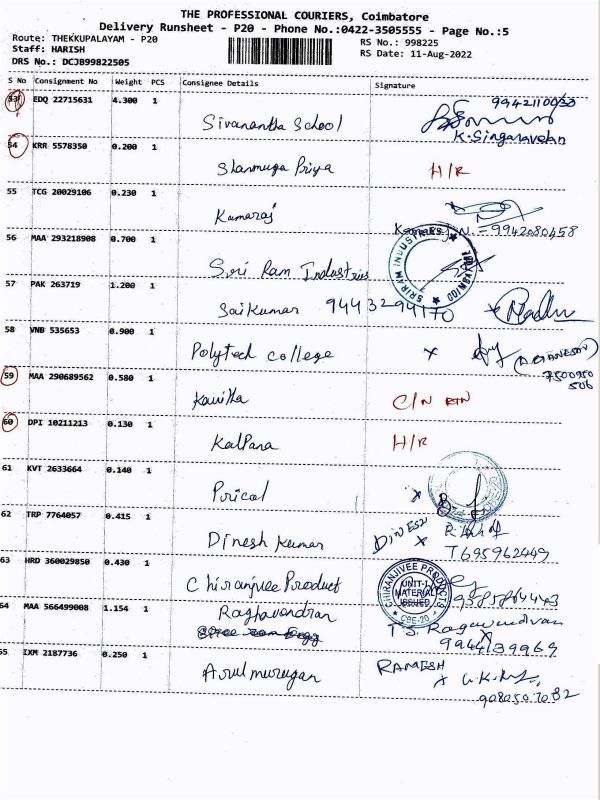 THE PROFESSIONAL COURIERS, Coimbatore
Delivery Runsheet - P20 - Phone No.:0422-3505555 - Page No.:5
Route: THEKKUPALAYAM - P20
RS No.: 998225
Staff: HARISH
RS Date: 11-Aug-2022
DRS No.: DCJB99822505
S No Consignment No Weight PCS Consignee Details Signature
53 EDQ 22715631 4.300 1 Sivanantha School
K. Singaravelan
54 KRR 5578350 0.200 1 Shanmuga Priya H/R
55 TCG 20029106 0.230 1 Kamaraj
Kamaraj N. - 9942080458
56 MAA 293218908 0.700 1 Sri Ram Industries
SRIRAM INDUSTRIES
57 PAK 263719 1.200 1 Saikumar 9443294170 x Madhu
58 VNB 535653 0.900 1 Polytech college x
7500950
506
59 MAA 290689562 0.580 1 Kavitha C/N RTN
60 DPI 10211213 0.130 1 Kalpana H/R
61 KVT 2633664 0.140 1 Pricol x
62 TRP 7764057 0.415 1 Dinesh Kumar DINESH x
T695962449
63 HRD 360029850 0.430 1 Chiranjvee Product
CHIRANJIVEE PRODUCTS UNIT-I MATERIAL ISSUED CBE-20
64 MAA 566499008 1.154 1 Raghavendran
T.S. Ragavendran
9944139969
65 IXM 2187736 0.250 1 Arul murugan RAMESH x